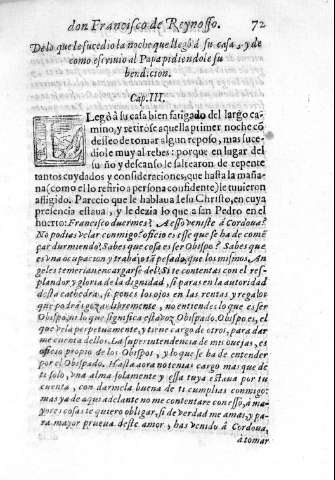 don Francisco de Reynosso. 72
De lo que le sucedio la noche que llegò à su casa, y de
como escriuio al Papa pidiendole su
bendicion.
Cap. III.
LLegò à su casa bien fatigado del largo ca-
mino, y retirose aquella primer noche cõ
desseo de tomar algun reposo, mas suce-
diole muy al rebes: porque en lugar del
sueño y descanso, le saltearon de repente
tantos cuydados y consideraciones, que hasta la maña-
na (como el lo refirio a persona confidente) le tuuieron
afligido. Parecio que le hablaua Iesu Christo, en cuya
presencia estaua, y le dezia lo que a san Pedro en el
huerto: Francisco duermes? A esso veniste à Cordoua?
No podias velar conmigo? oficio es esse que se ha de com
par durmiendo? Sabes que cosa es ser Obispo? Sabes que
es vna ocupacion y trabajo tã pesado, que los mismos An
geles temerian encargarse del? Si te contentas con el res-
plandor y gloria de la dignidad, si paras en la autoridad
desta cathedra, si pones los ojos en las rentas y regalos
que podràs gozar libremente, no entiendes lo que es ser
Obispo, ni lo que significa esta voz Obispado. Obispo es, el
que vela perpetuamente, y tiene cargo de otros, para dar
me cuenta dellos. La superintendencia de mis ouejas, es
oficio propio de los Obispos, y lo que se ha de entender
por el Obispado. Hasta aora no tenias cargo mas que de
ti solo, vna alma solamente y essa tuya estaua por tu
cuenta, con darmela buena de ti cumplias conmigo:
mas ya de aqui adelante no me contentare con esso, à ma
yores cosas te quiero obligar, si de verdad me amas, y pa-
ra mayor prueua deste amor, has venido à Cordoua,
à tomar